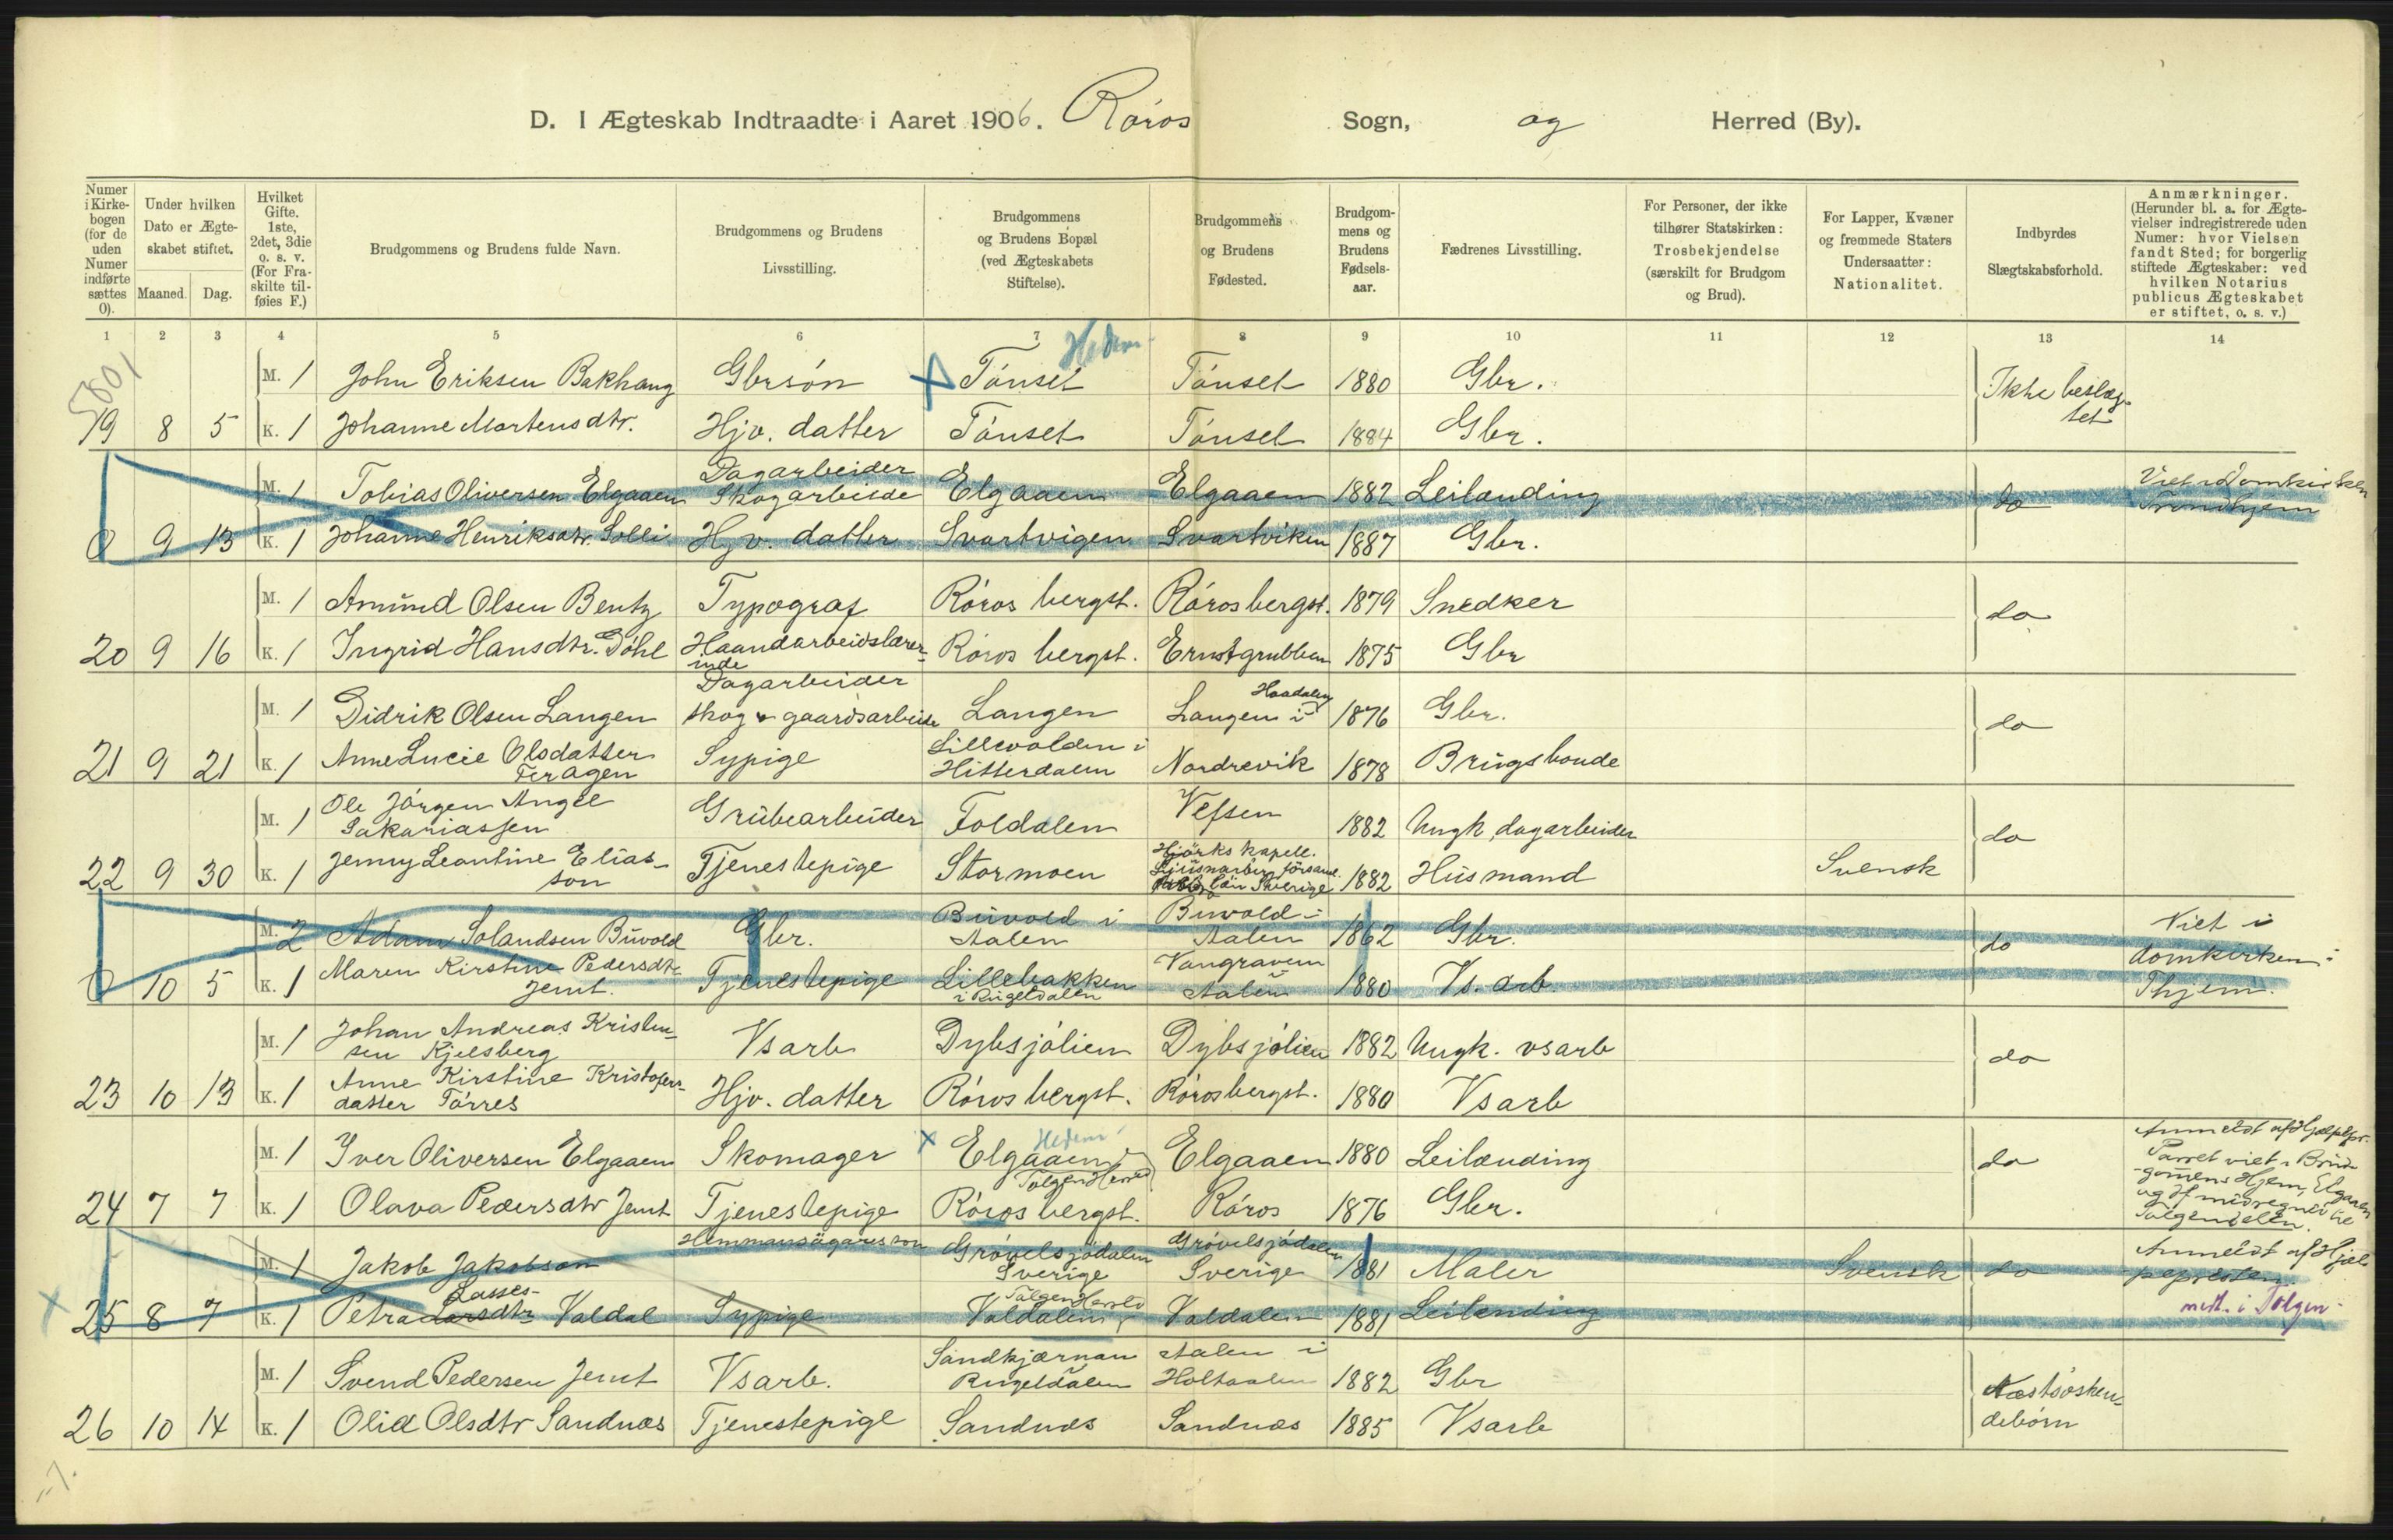 D. I Ægteskab Indtraadte i Aaret 1906. Röros Sogn, og Herred (By).
Numer i Kirkebogen (for de uden Numer indførte sættes 0).
Under hvilken Dato er Ægteskabet stiftet.
Maaned. Dag.
Hvilket Gifte. 1ste, 2det, 3die o. s. v. (For Fraskilte tilføies F.)
Brudgommens og Brudens fulde Navn.
Brudgommens og Brudens Livsstilling.
Brudgommens og Brudens Bopæl (ved Ægteskabets Stiftelse).
Brudgommens og Brudens Fødested.
Brudgommens og Brudens Fødselsaar.
Fædrenes Livsstilling.
For Personer, der ikke tilhører Statskirken: Trosbekjendelse (særskilt for Brudgom og Brud).
For Lapper, Kvæner og fremmede Staters Undersaatter: Nationalitet.
Indbyrdes Slægtskabsforhold.
Anmærkninger. (Herunder bl. a. for Ægtevielser indregistrerede uden Numer: hvor Vielsen fandt Sted; for borgerlig stiftede Ægteskaber: ved hvilken Notarius publicus Ægteskabet er stiftet, o. s. v.)
1 2 3 4 5 6 7 8 9 10 11 12 13 14
5801
Hedem
M. 1 John Eriksen Bakhaug Gbrsön X Tönset Tönset 1880 Gbr. Ikke beslæg-
tet
19 8 5 K. 1 Johanne Mortensdtr. Hjv. datter Tönset Tönset 1884 Gbr.
M. 1 Tobias Oliversen Elgaaen Dagarbeider
Skogarbeide Elgaaen Elgaaen 1882 Leilænding do Viet i Domkirken
Trondhjem
0 9 13 K. 1 Johanne Henriksdtr. Solli Hjv. datter Svartvigen Svartviken 1887 Gbr.
M. 1 Amund Olsen Bentz Typograf Röros bergst. Röros bergst. 1879 Snedker do
20 9 16 K. 1 Ingrid Hansdtr. Döhl Haandarbeidslærer-
inde Röros bergst. Ernstgrubben 1875 Gbr
M. 1 Didrik Olsen Langen Dagarbeider
skog & gaardsarbeide Langen Langen i Haadalen 1876 Gbr. do
21 9 21 K. 1 Anne Lucie Olsdatter
Feragen Sypige Lillevolden i
Hitterdalen Nordrevik 1878 Brugsbonde
M. 1 Ole Jörgen Angel
Sakariassen Grubearbeider Foldalen Vefsen 1882 Ungk, dagarbeider do
22 9 30 K. 1 Jenny Leontine Elias-
son Tjenestepige Stormoen kapell.
län Sverige 1882 Husmand Svensk
M. 2 Adam Solandsen Buvold Gbr. Buvold i
Aalen Buvold i
Aalen 1862 Gbr. do Viet i
domkirken i
Thjem.
0 10 5 K. 1 Maren Kirstine Pedersdtr
Jemt. Tjenestepige Lillebakken
i Rugeldalen Vangraven
Aalen 1880 Vs. arb.
M. 1 Johan Andreas Kristen-
sen Kjelsberg Vsarb Dybsjölien Dybsjölien 1882 Ungk. vsarb do
23 10 13 K. 1 Anne Kirstine Kristofers-
datter Törres Hjv. datter Röros bergst. Rörosbergst. 1880 Vsarb
Hedem
M. 1 Iver Oliversen Elgaaen Skomager x Elgaaen i
Tolgen Herred Elgaaen 1880 Leilænding do Anmeldt af Hjælpepr.
Parret viet i Brud-
gommens Hjem, Elgaaen
Tolgendelen.
24 7 7 K. 1 Olava Pedersdtr Jemt Tjenestepige Röros bergst. Röros 1876 Gbr.
M. 1 Jakob Jakobson Hemmansägares son Grövelsjödalen
Sverige Grövelsjödalen
Sverige 1881 Maler Svensk do Anmeldt af Hjæl-
pepresten.
medt. i Tolgen
x 25 8 7 K. 1 Petra Larsdtr Lasses- Valdal Sypige Tolgen Herred
Valdalen Valdalen 1881 Leilænding
M. 1 Svend Pedersen Jemt Vsarb. Sandkjærnan
Rugeldalen Aalen i
Holtaalen 1882 Gbr Næstsösken-
debörn
26 10 14 K. 1 Olia Olsdtr Sandnæs Tjenestepige Sandnæs Sandnæs 1885 Vsarb